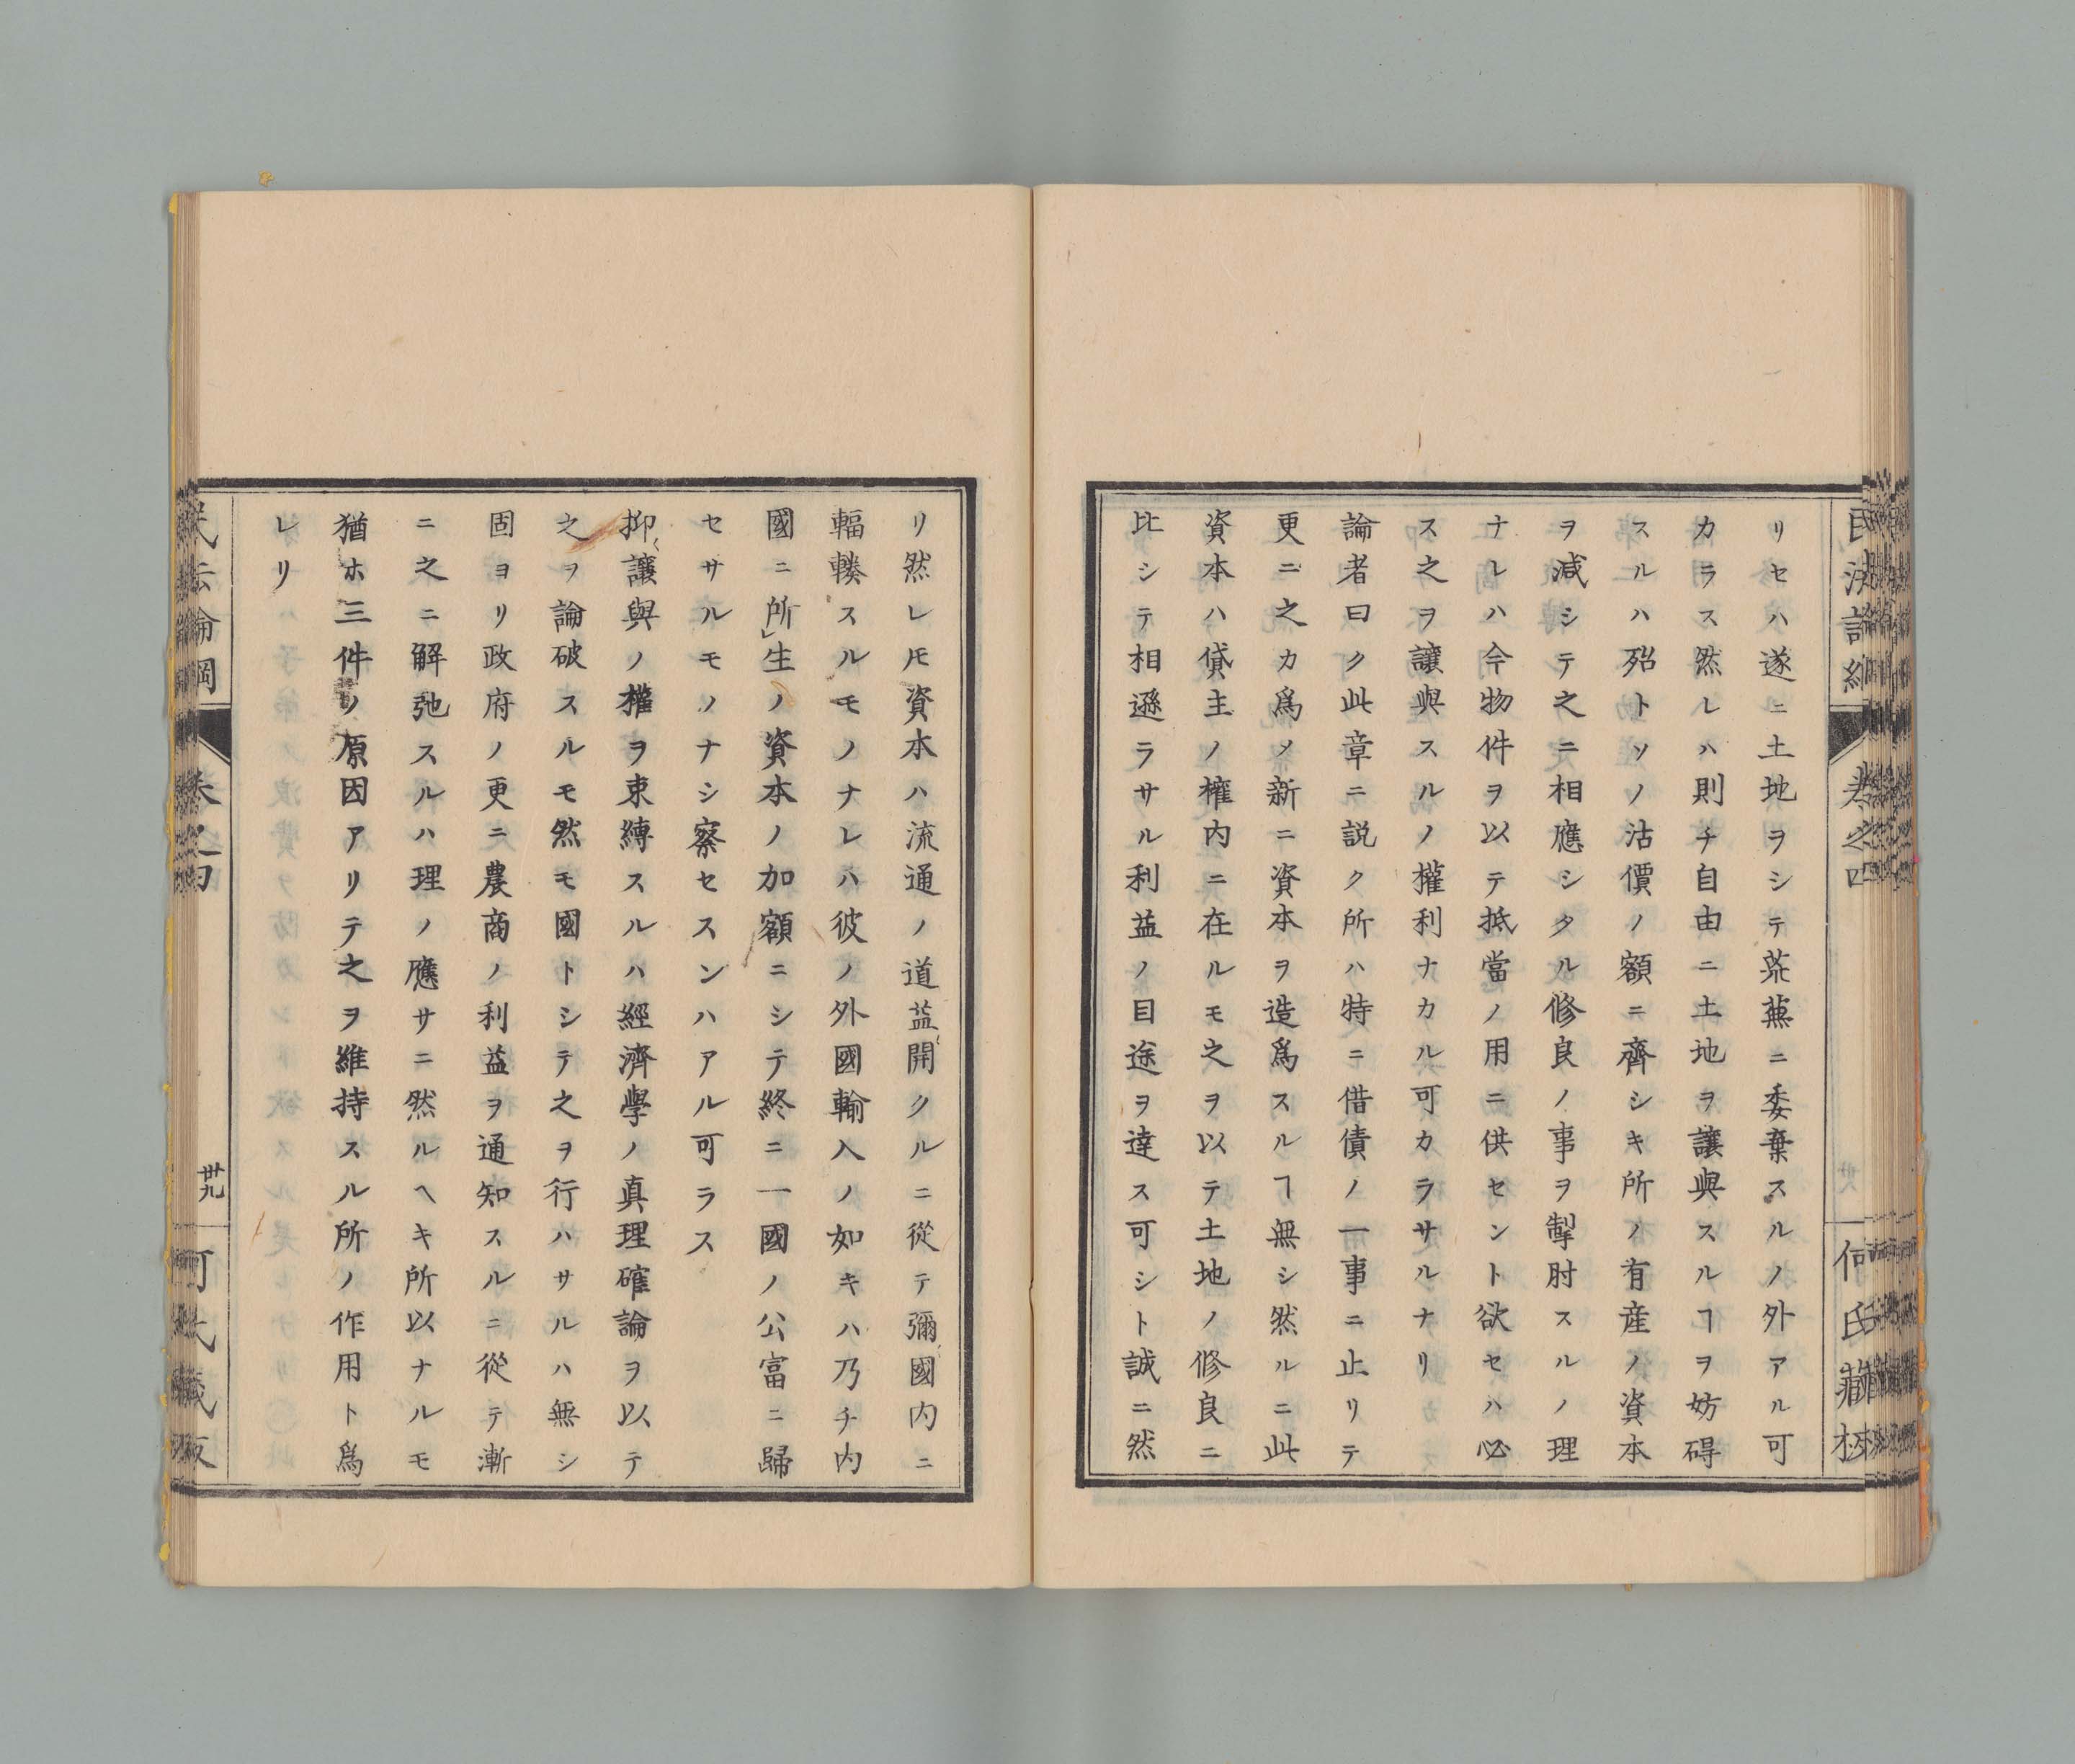 民法論綱
卷之四
何氏藏板
リセハ遂ニ土地ヲシテ荒蕪ニ委棄スルノ外アル可
カラス然レハ則チ自由ニ土地ヲ讓與スルヿヲ妨碍
スルハ殆トソノ沽價ノ額ニ齊シキ所ノ有産ノ資本
ヲ減シテ之ニ相應シタル修良ノ事ヲ掣肘スルノ理
ナレハ今物件ヲ以テ抵當ノ用ニ供セント欲セハ必
ス之ヲ讓與スルノ權利ナカル可カラサルナリ
論者曰ク此章ニ説ク所ハ特ニ借債ノ一事ニ止リテ
更ニ之カ爲メ新ニ資本ヲ造爲スルヿ無シ然ルニ此
資本ハ貸主ノ權内ニ在ルモ之ヲ以テ土地ノ修良ニ
比シテ相遜ラサル利益ノ目途ヲ達ス可シト誠ニ然
リ然レ𪜈資本ハ流通ノ道益開クルニ從テ彌國内ニ
輻輳スルモノナレハ彼ノ外國輸入ノ如キハ乃チ内
國ニ所生ノ資本ノ加額ニシテ終ニ一國ノ公富ニ歸
セサルモノナシ察セスンハアル可ラス
抑讓與ノ權ヲ束縛スルハ經濟學ノ真理確論ヲ以テ
之ヲ論破スルモ然モ國トシテ之ヲ行ハサルハ無シ
固ヨリ政府ノ更ニ農商ノ利益ヲ通知スルニ從テ漸
ニ之ニ解弛スルハ理ノ應サニ然ルヘキ所以ナルモ
猶ホ三件ノ原因アリテ之ヲ維持スル所ノ作用ト爲
レリ
民法論綱
卷之四
卅九
何氏藏板